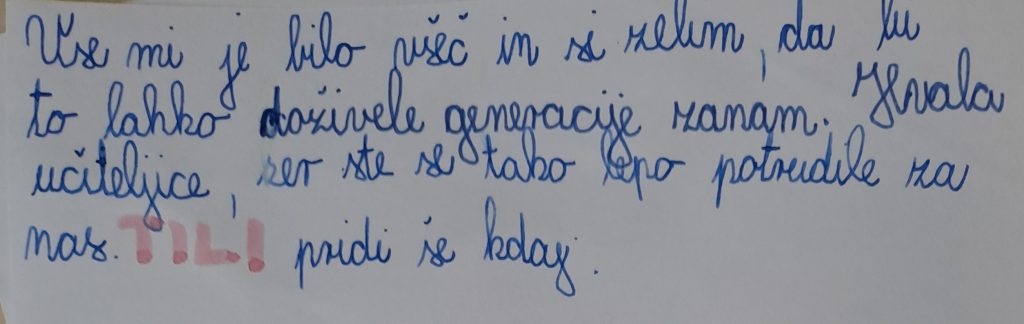 Vse mi je bilo všeč in si želim, da bi
to lahko doživele generacije zanam. Hvala
učiteljice, ker ste se tako lepo potrudile za
nas. TILI pridi še kdaj.